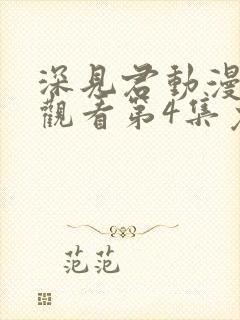 深見君動漫
觀看第4集
范范